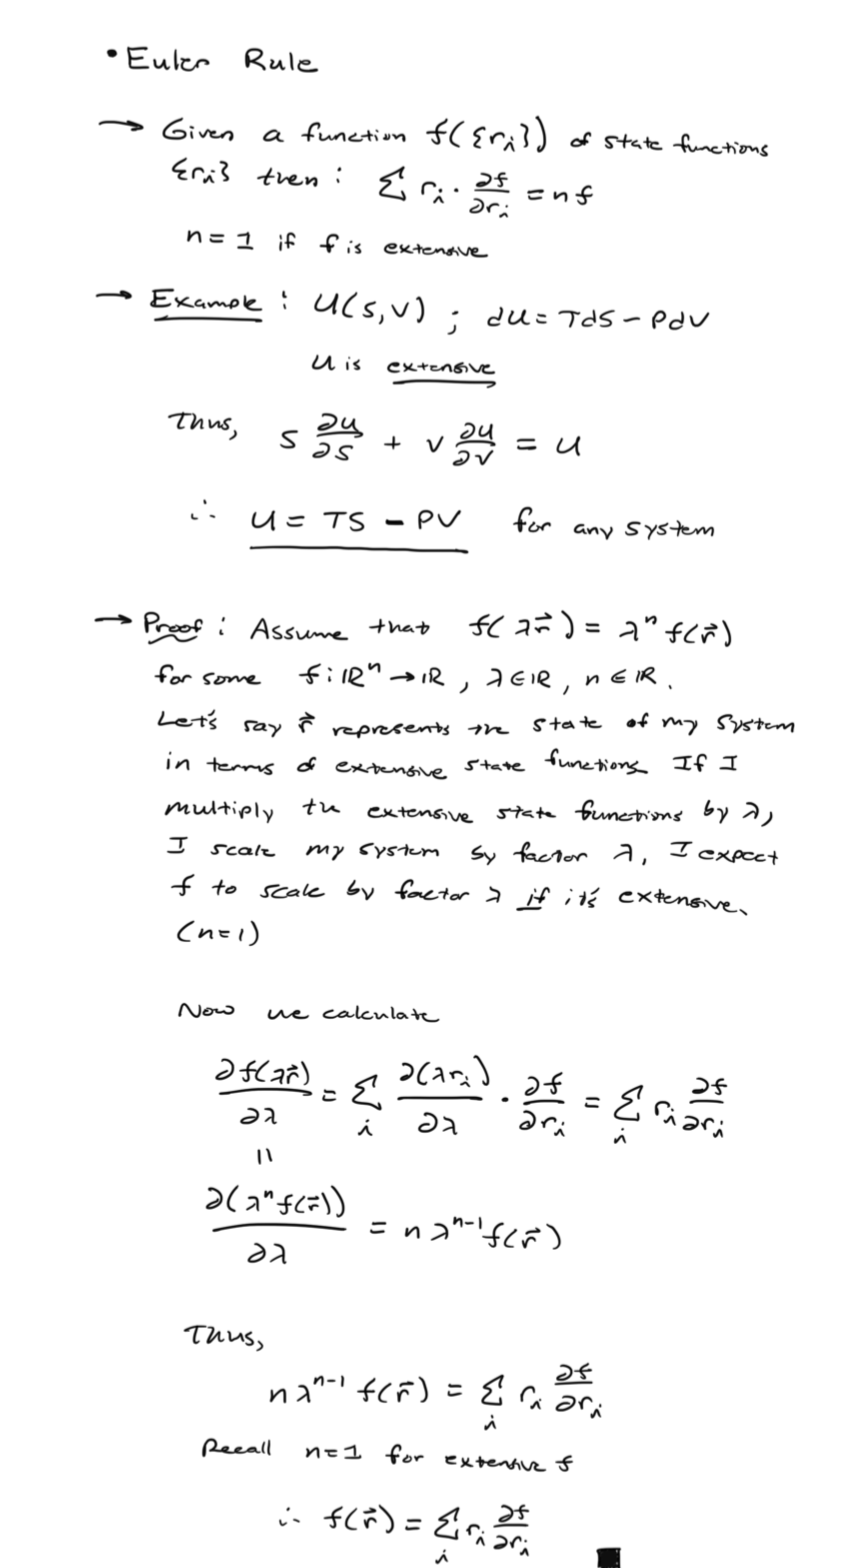 • Euler Rule
→ Given a function f({rᵢ}) of state functions
{rᵢ} then : Σ rᵢ · ∂f/∂rᵢ = n f
n = 1 if f is extensive
→ Example : U(S,V) ; dU = TdS - PdV
U is extensive
Thus, S ∂U/∂S + V ∂U/∂V = U
∴ U = TS - PV for any system
→ Proof : Assume that f(λr⃗) = λⁿ f(r⃗)
for some f : ℝⁿ → ℝ , λ ∈ ℝ , n ∈ ℝ.
Let's say r⃗ represents the state of my system
in terms of extensive state functions. If I
multiply the extensive state functions by λ,
I scale my system by factor λ, I expect
f to scale by factor λ if it's extensive.
(n=1)
Now we calculate
∂f(λr⃗)/∂λ = Σᵢ ∂(λrᵢ)/∂λ · ∂f/∂rᵢ = Σᵢ rᵢ ∂f/∂rᵢ
=
∂(λⁿf(r⃗))/∂λ = n λⁿ⁻¹ f(r⃗)
Thus,
n λⁿ⁻¹ f(r⃗) = Σᵢ rᵢ ∂f/∂rᵢ
Recall n=1 for extensive f
∴ f(r⃗) = Σᵢ rᵢ ∂f/∂rᵢ ■